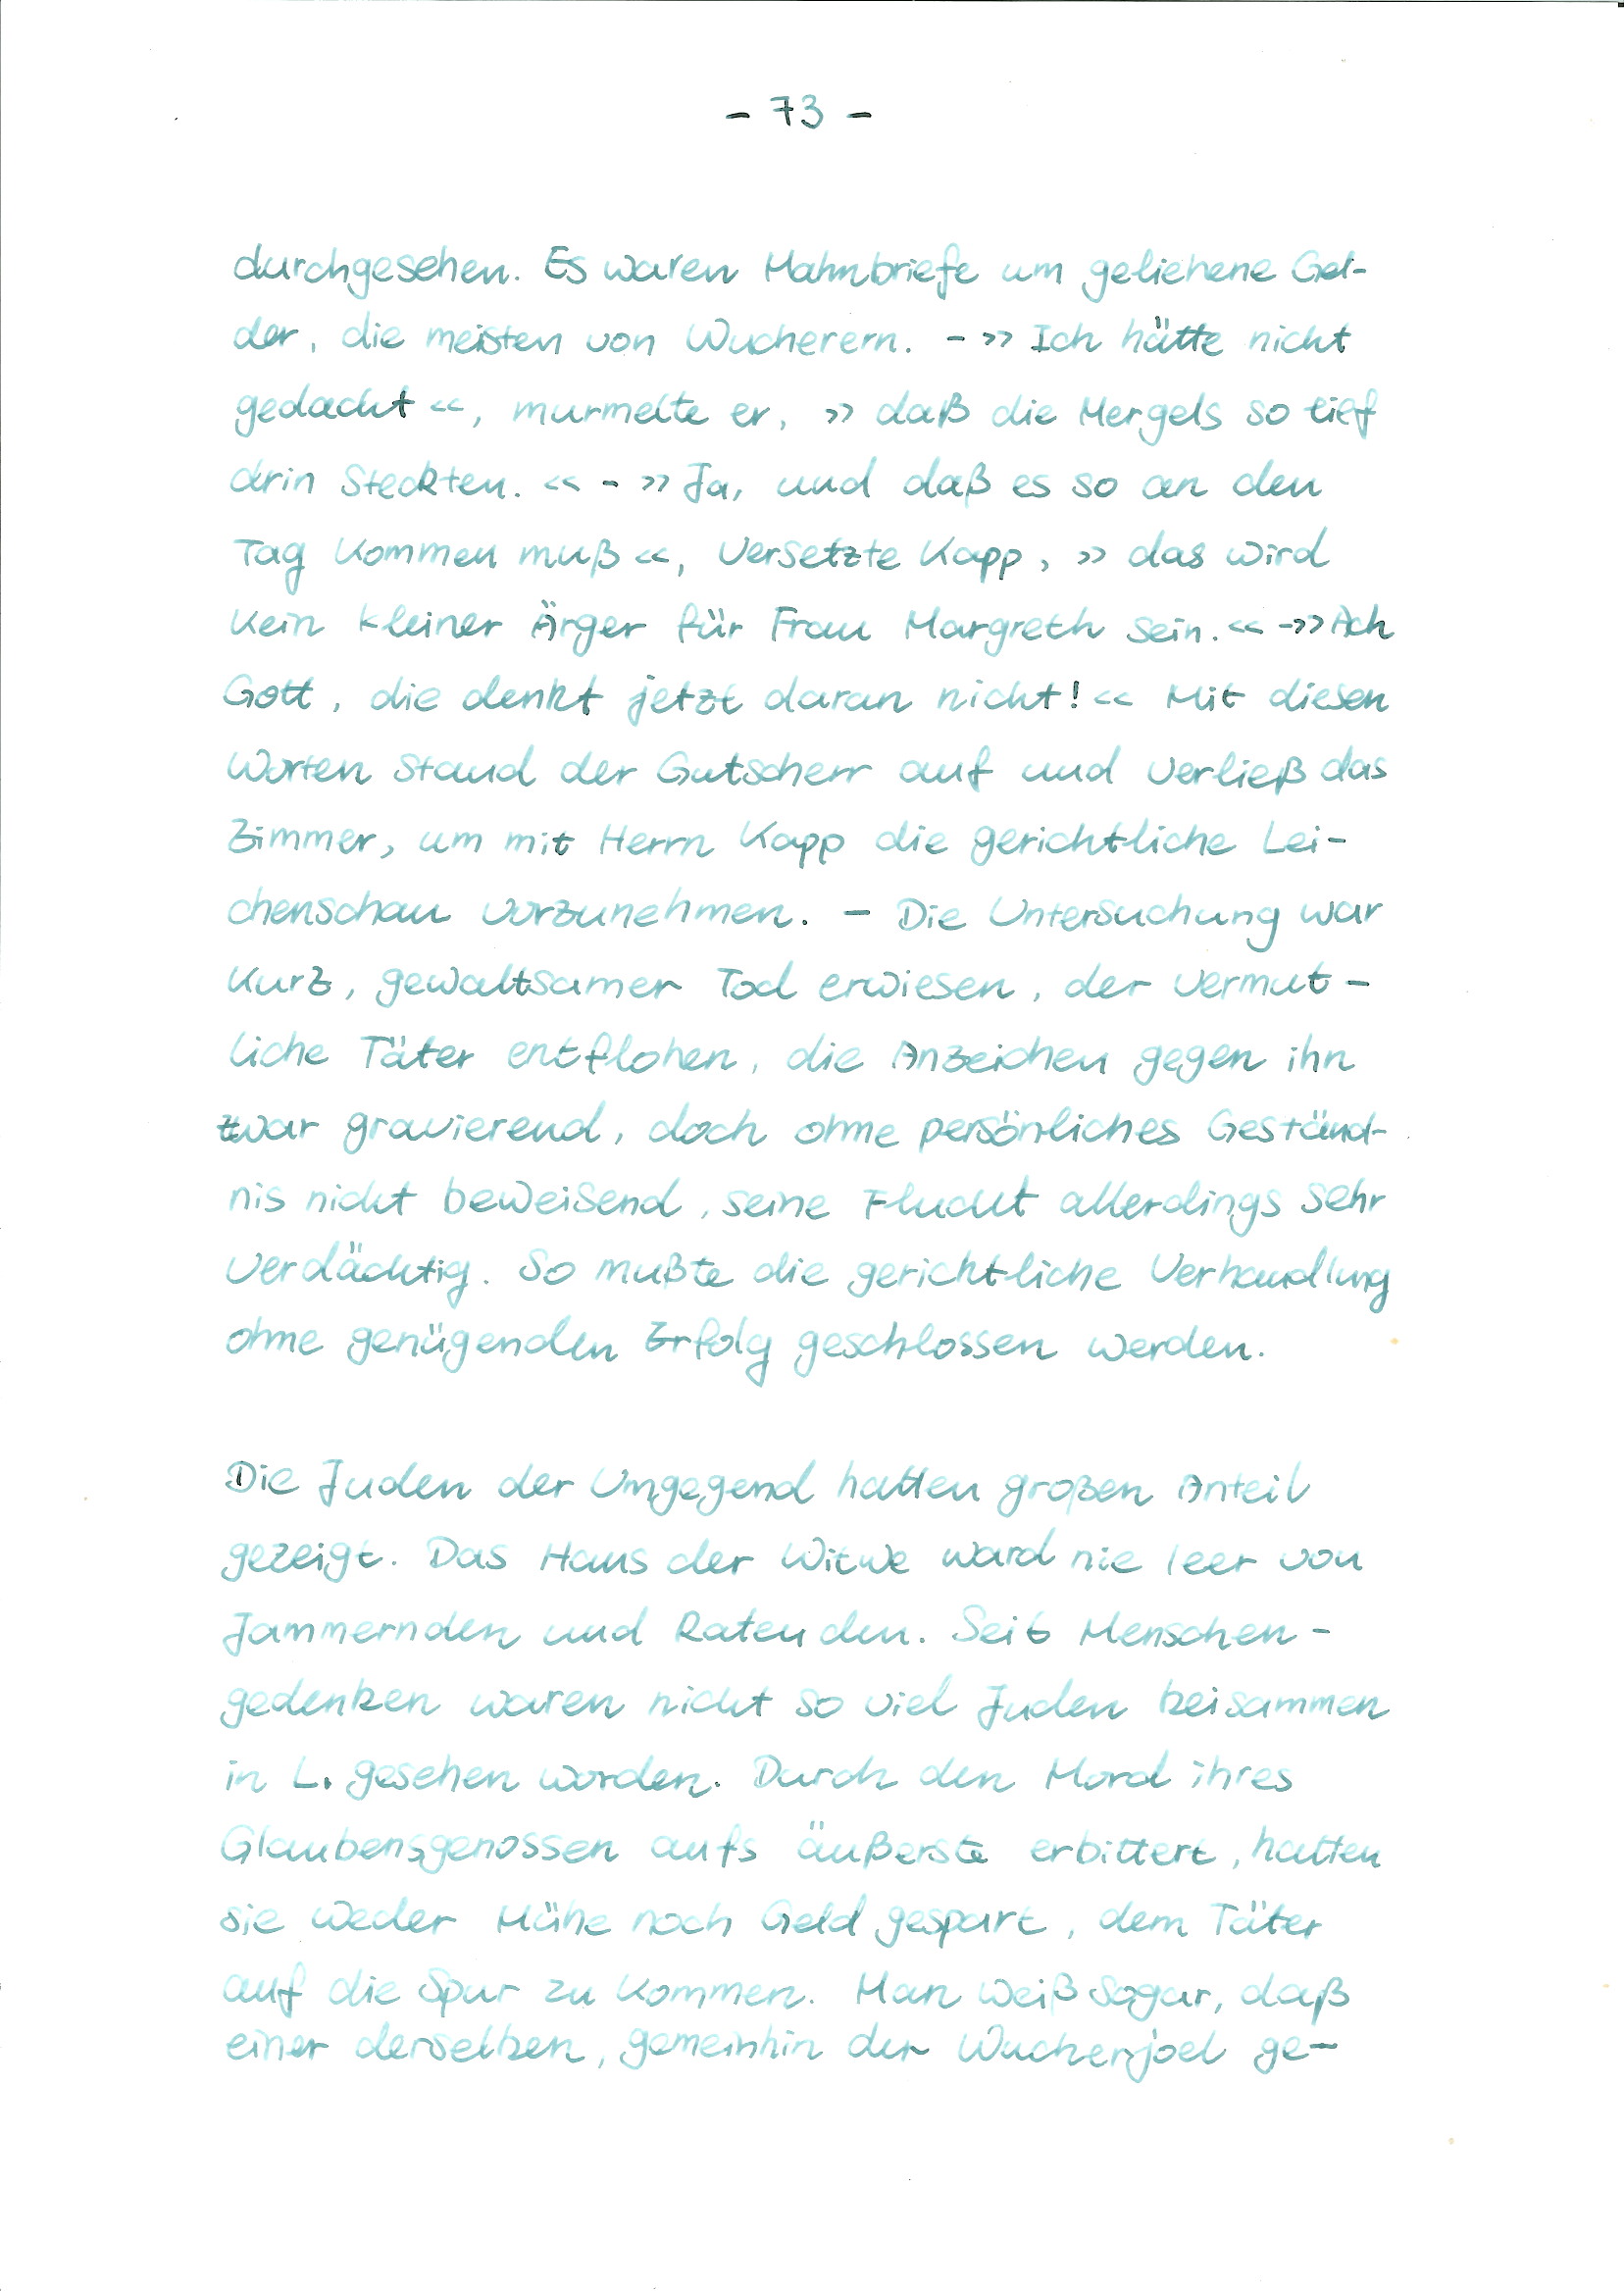 - 73 -
durchgesehen. Es waren Mahnbriefe um geliehene Gel-
der, die meisten von Wucherern. - »Ich hätte nicht
gedacht«, murmelte er, »daß die Mergels so tief
drin steckten.« - »Ja, und daß es so an den
Tag kommen muß«, versetzte Kapp, »das wird
kein kleiner Ärger für Frau Margreth sein.« - »Ach
Gott, die denkt jetzt daran nicht!« Mit diesen
Worten stand der Gutscherr auf und verließ das
Zimmer, um mit Herrn Kapp die gerichtliche Lei-
chenschau vorzunehmen. - Die Untersuchung war
kurz, gewaltsamer Tod erwiesen, der vermut-
liche Täter entflohen, die Anzeichen gegen ihn
zwar gravierend, doch ohne persönliches Geständ-
nis nicht beweisend, seine Flucht allerdings sehr
verdächtig. So mußte die gerichtliche Verhandlung
ohne genügenden Erfolg geschlossen werden.
Die Juden der Umgegend hatten großen Anteil
gezeigt. Das Haus der Witwe ward nie leer von
Jammernden und Ratenden. Seit Menschen-
gedenken waren nicht so viel Juden beisammen
in L. gesehen worden. Durch den Mord ihres
Glaubensgenossen aufs äußerste erbittert, hatten
sie weder Mühe noch Geld gespart, dem Täter
auf die Spur zu kommen. Man weiß sogar, daß
einer derselben, gemeinhin der Wucherjoel ge-